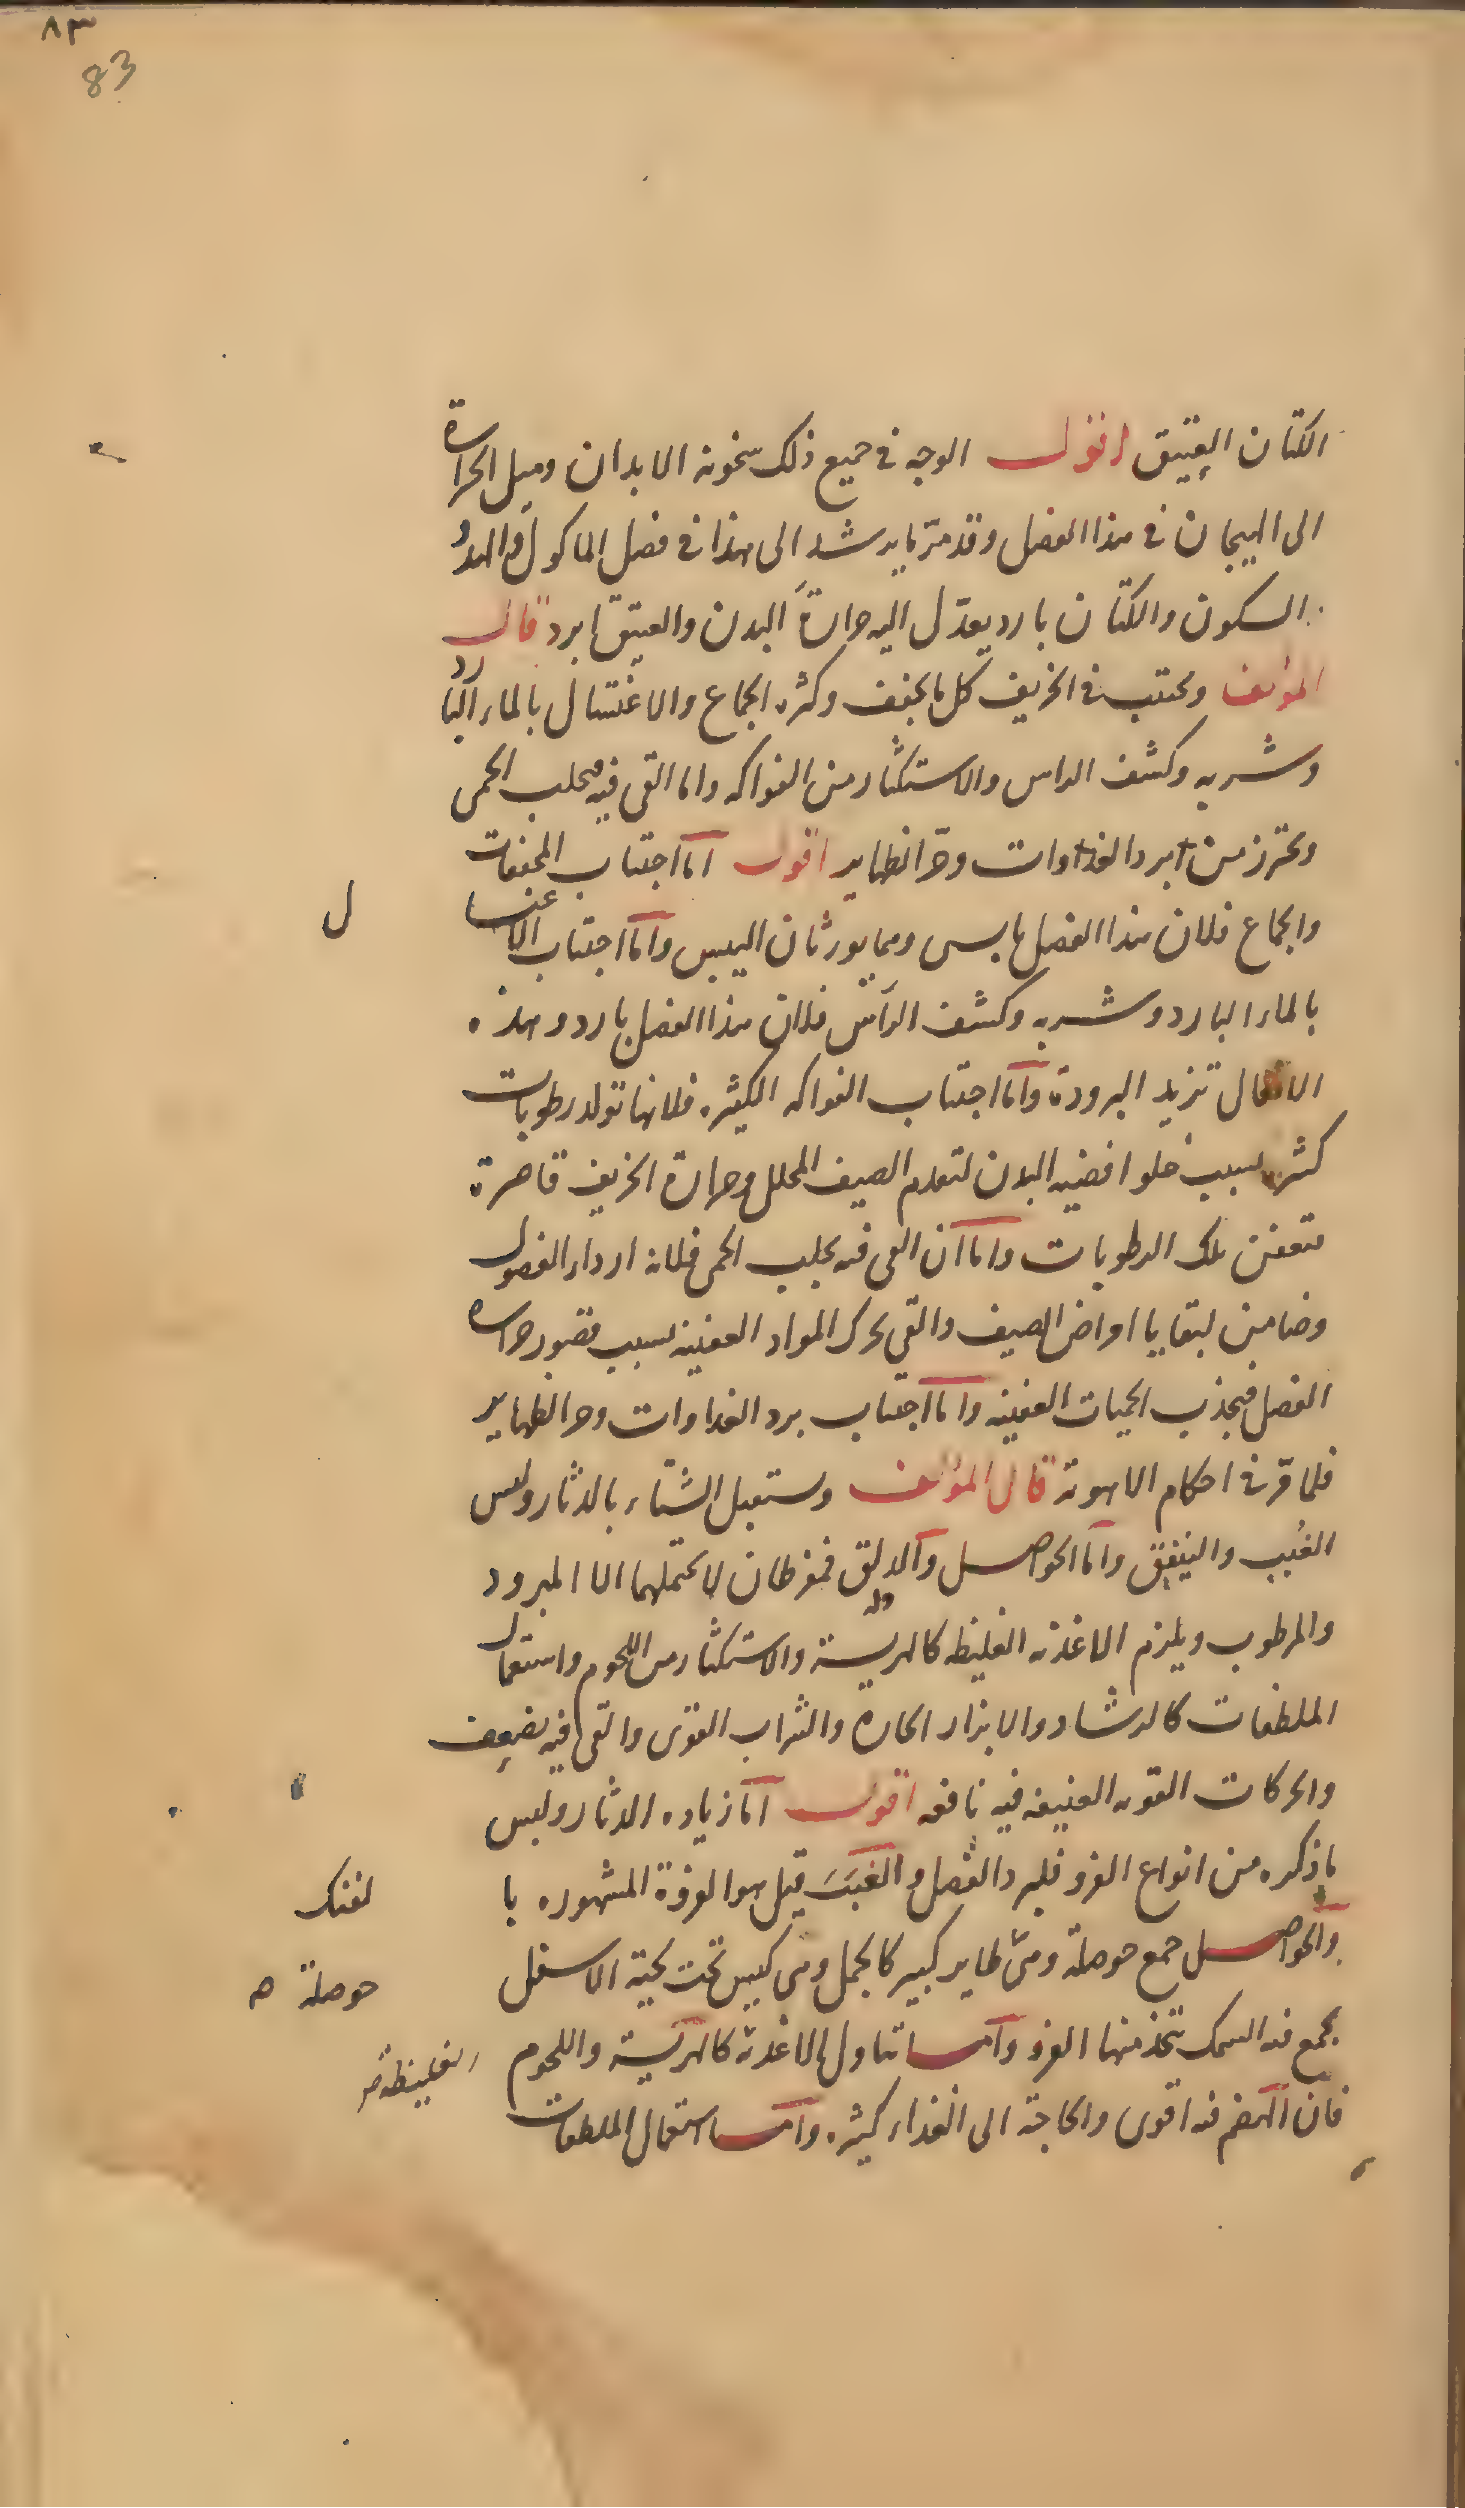 ٨٣
83
الكتان العتيق اقول الوجه في جميع ذلك سخونة الابدان وميل الحرارة
الى الهيجان في هذا الفصل وقد مرّ ما يرشد الى هذا في فصل الماكول والهدو
السكون والكتان بارد يعدّل اليه حرارة البدن والعتيق ابرد قال
المؤلف ويجتنب في الخريف كل ما يجفف وكثرة الجماع والاغتسال بالماء البارد
وشربه وكشف الراس والاستكثار من الفواكه واما القي فيه فيجلب الحمى
ويحترز من برد الغداوات وحرّ الظهاير اقول امّا اجتناب المجففات
والجماع فلان هذا الفصل يابس وهما يورثان اليبس وامّا اجتناب الاغتسا
ل
بالماء البارد وشربه وكشف الرأس فلان هذا الفصل بارد وهذه
الافعال تزيد البرودة وامّا اجتناب الفواكه الكثيرة فلانها تولد رطوبات
كثيرة بسبب خلو افضية البدن لتقدم الصيف المحلل وحرارة الخريف قاصرة
فتعفن تلك الرطوبات واما ان القي فيه يجلب الحمى فلانه اردا الفصول
وضامن لبقايا امراض الصيف والقي يحرك المواد العفنة بسبب قصور حرارة
الفصل فيجذب الحميات العفنة وامّا اجتناب برد الغداوات وحر الظهاير
فلما مرّ في احكام الاهوية قال المؤلف ويستقبل الشتاء بالدثار ولبس
الغُبب والنيفق وامّا الحواصل والدلق فمفرطان لا يحتملهما الا المبرود
والمرطوب ويلزم الاغذية الغليظة كالهريسة والاستكثار من اللحوم واستعمال
الملطفات كالرشاد والابزار الحارة والشراب القوى والقي فيه يضعف
والحركات القوية العنيفة فيه نافعة اقول امّا زيادة الدثار ولبس
ما ذكره من انواع الفرو فلبرد الفصل والغبب قيل هو الفروة المشهورة با
لفنك
والحواصل جمع حوصلة وهي طاير كبير كالجمل وهي كيس تحت لحية الاسفل
حوصلة
يجمع فيه السمك يتخذ منها الفرو وامّا تناول الاغذية كالهريسة واللحوم
الغليظة
فان الهضم فيه اقوى والحاجة الى الغذاء كثيرة وامّا استعمال الملطفات